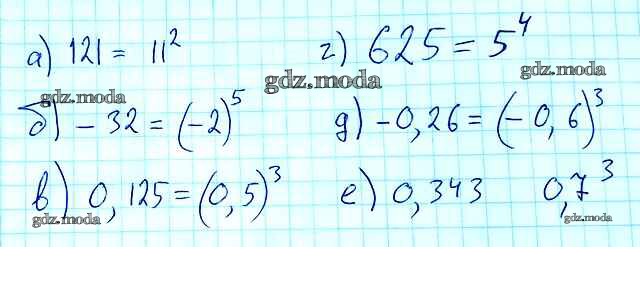 а) 121 = 11²
г) 625 = 5⁴
gdz.moda
gdz.moda
gdz.moda
б) - 32 = (-2)⁵
д) - 0,26 = (- 0,6)³
в) 0,125 = (0,5)³
е) 0,343 0,7³
gdz.moda
gdz.moda